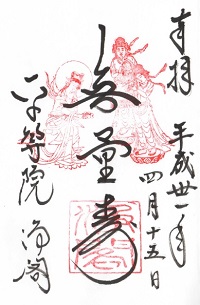 奉拝
平成卅一年
四月十五日
無量寿
平等院
浄閣